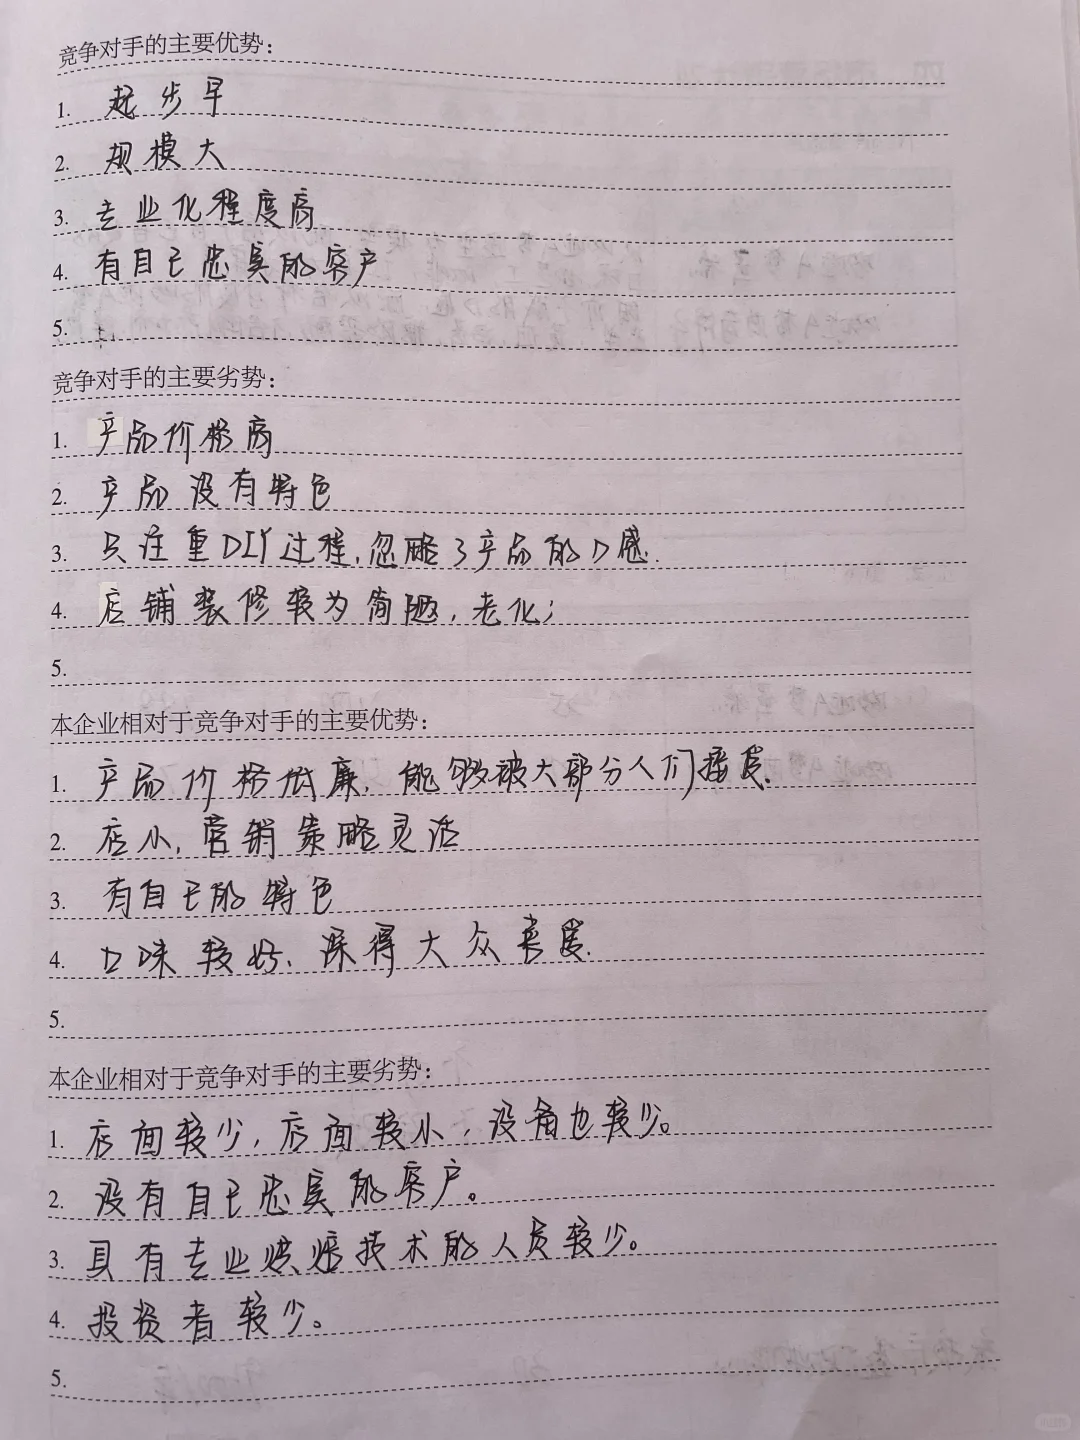 竞争对手的主要优势：
1. 起步早
2. 规模大
3. 专业化程度高
4. 有自己忠实的客户
5.
竞争对手的主要劣势：
1. 产品价格高
2. 产品没有特色
3. 只注重DIY过程，忽略了产品的口感.
4. 店铺装修较为简陋，老化；
5.
本企业相对于竞争对手的主要优势：
1. 产品价格低廉，能够被大部分人们接受.
2. 店小，营销策略灵活
3. 有自己的特色
4. 口味较好、深得大众喜爱.
5.
本企业相对于竞争对手的主要劣势：
1. 店面较少，店面较小，设备也较少。
2. 没有自己忠实的客户。
3. 具有专业烘焙技术的人员较少。
4. 投资者较少。
5.